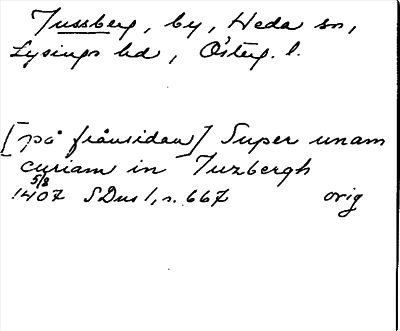 Tussberg, by, Heda sn,
Lysings hd, Österg. l.
[på frånsidan] Super unam
curiam in Tuzbergh
5/8
1407 SDns 1, s. 667 orig